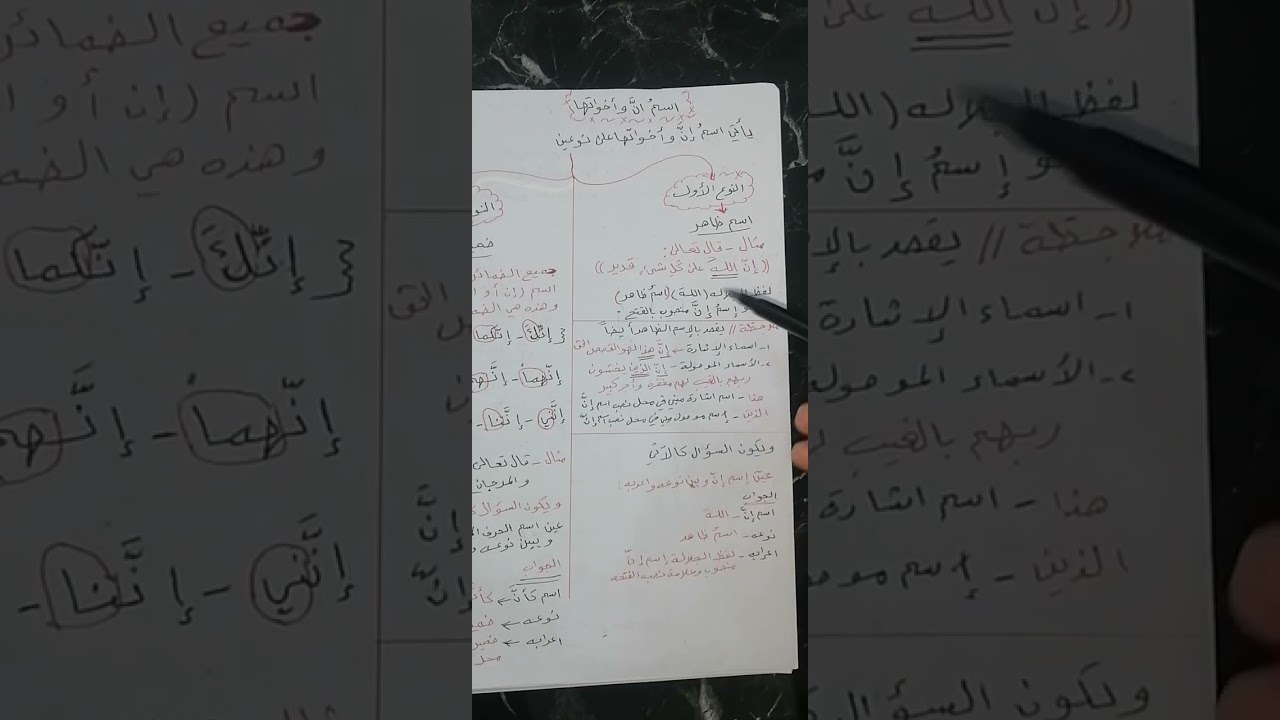 اسمُ إنَّ وأخواتها
يأتي اسمُ إنَّ وأخواتها على نوعين
النوع الأول
اسم ظاهر
مثال - قال تعالى:
((إنَّ اللهَ على كلِّ شيءٍ قدير))
لفظ الجلاله (اللهَ) (اسمُ ظاهر)
و إسمُ إنَّ منصوب بالفتح.
ملاحظة // يقصد بالإسم الظاهر أيضاً
١- اسماء الإشارة ← إنَّ هذا لهو القصص الحق
٢- الأسماء الموصولة - إنَّ الذين يخشون
ربهم بالغيب لهم مغفرة وأجر كبير
هذا - اسم اشارة مبني في محل نصب اسم إنَّ
الذين - إسم موصول مبني في محل نصب اسم إنَّ
ويكون السؤال كالآتي
عيّن إسم إنَّ وبيّن نوعه واعربه:
الجواب
اسم إنَّ - اللهَ
نوعه - اسمُ ظاهر
اعرابه - لفظ الجلالة إسم إنَّ
منصوب وعلامة نصبه الفتحه
النو
ضمي
جميع الضمائر
اسم (إن أو ا
وهذه هي الضم
{ إنَّكَ - إنَّكما
إنَّهما - إنَّهم
إنَّني - إنَّنا -
مثال - قال تعالى
والمرجان
ويكون السؤال
عين اسم الحرف الم
وبين نوعه و
الجواب
اسم كأنَّ ← كأن
نوعه ← ضمير
اعرابه ← ضمير
محل